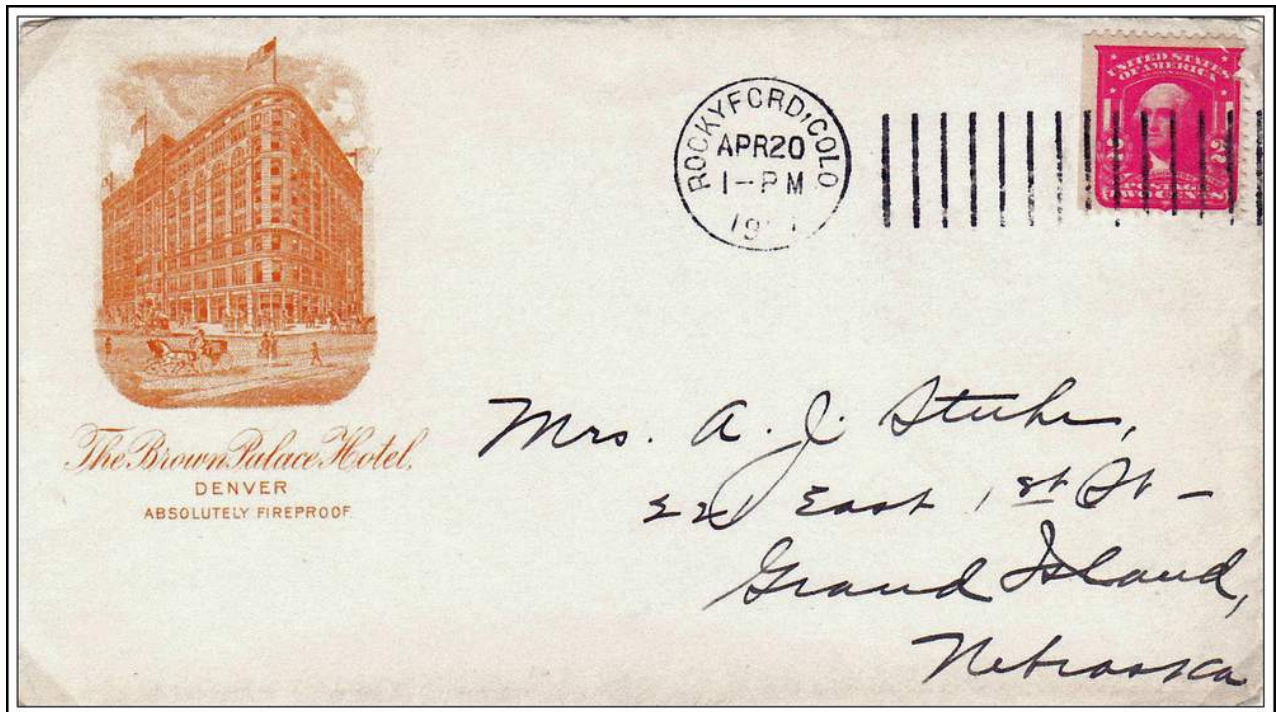 The Brown Palace Hotel,
DENVER
ABSOLUTELY FIREPROOF.
ROCKYFORD, COLO
APR 20
1-PM
UNITED STATES
OF AMERICA
2 2
TWO CENTS
Mrs. A. J.
East 1st St -
Grand Island,
Nebraska